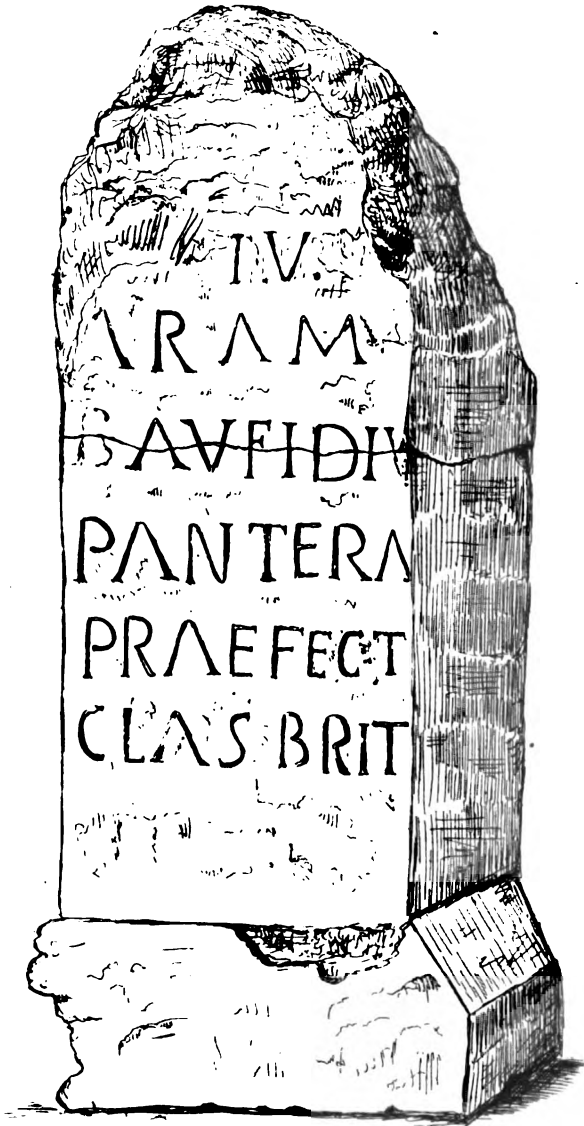 IV.
ARAM
B AVFIDIV
PANTERA
PRAEFECT
CLAS BRIT